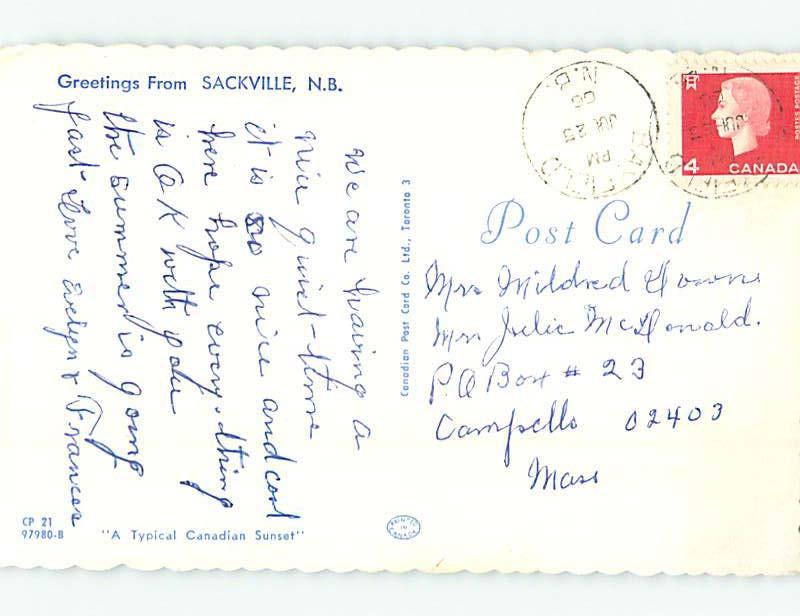 Greetings From SACKVILLE, N.B.
We are having a
nice quiet time
it is so nice and cool
here hope every-thing
is OK with you
the summer is going
fast Love Evelyn & Frances
CP 21
97980-B
"A Typical Canadian Sunset"
PRINTED IN CANADA
Canadian Post Card Co. Ltd., Toronto 3
N.B.
PM
JUL 23
66
4
CANADA
POSTES POSTAGE
Post Card
Mrs Mildred
Mrs Julie McDonald.
P.O Box # 23
Campello 02403
Mass